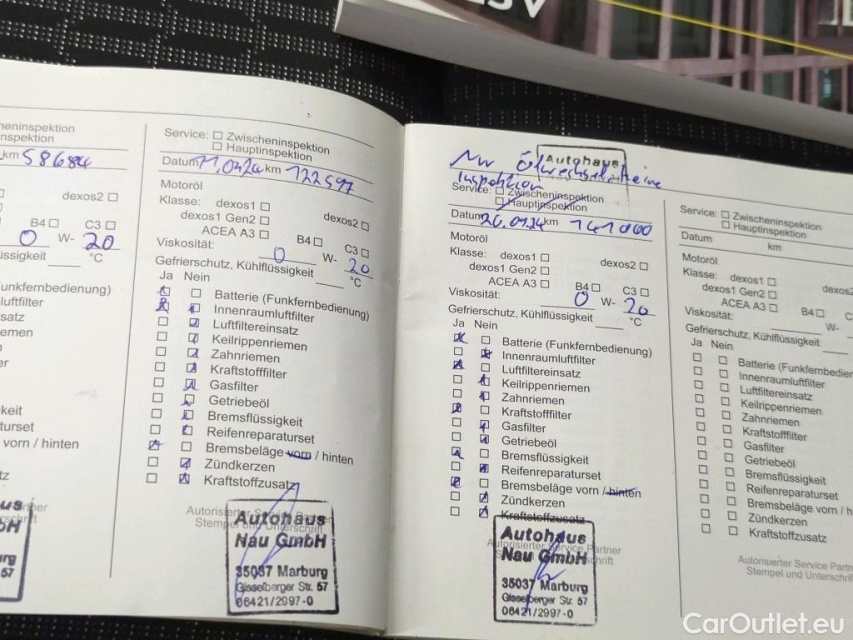 heninspektion
nspektion
km 58684
dexos2
B4 C3
0 W- 20
üssigkeit °C
unkfernbedienung)
umluftfilter
satz
riemen
keit
turset
vorn / hinten
Service: Zwischeninspektion
Hauptinspektion
Datum 11.04.24 km 122597
Motoröl
Klasse: dexos1
dexos1 Gen2 dexos2
ACEA A3 B4 C3
Viskosität: 0 W- 20
Gefrierschutz, Kühlflüssigkeit °C
Ja Nein
Batterie (Funkfernbedienung)
Innenraumluftfilter
Luftfiltereinsatz
Keilrippenriemen
Zahnriemen
Kraftstofffilter
Gasfilter
Getriebeöl
Bremsflüssigkeit
Reifenreparaturset
Bremsbeläge vorn / hinten
Zündkerzen
Kraftstoffzusatz
Autorisierter Service Partner
Stempel und Unterschrift
Autohaus
Nau GmbH
35037 Marburg
Gisselberger Str. 57
06421/2997-0
Autohaus
Inspektion
Service: Zwischeninspektion
Hauptinspektion
Datum 26.09.24 km 141000
Motoröl
Klasse: dexos1 dexos2
dexos1 Gen2
ACEA A3 B4 C3
Viskosität: 0 W- 20
Gefrierschutz, Kühlflüssigkeit °C
Ja Nein
Batterie (Funkfernbedienung)
Innenraumluftfilter
Luftfiltereinsatz
Keilrippenriemen
Zahnriemen
Kraftstofffilter
Gasfilter
Getriebeöl
Bremsflüssigkeit
Reifenreparaturset
Bremsbeläge vorn / hinten
Zündkerzen
Kraftstoffzusatz
Autorisierter Service Partner
Autohaus
Nau GmbH
35037 Marburg
Gisselberger Str. 57
06421/2997-0
Service: Zwischeninspektion
Hauptinspektion
Datum km
Motoröl
Klasse: dexos1 dexos2
dexos1 Gen2
ACEA A3 B4
Viskosität: W-
Gefrierschutz, Kühlflüssigkeit
Ja Nein
Batterie (Funkfernbedien
Innenraumluftfilter
Luftfiltereinsatz
Keilrippenriemen
Zahnriemen
Kraftstofffilter
Gasfilter
Getriebeöl
Bremsflüssigkeit
Reifenreparaturset
Bremsbeläge vorn / h
Zündkerzen
Kraftstoffzusatz
Autorisierter Service Partn
Stempel und Unterschrif
CarOutlet.eu